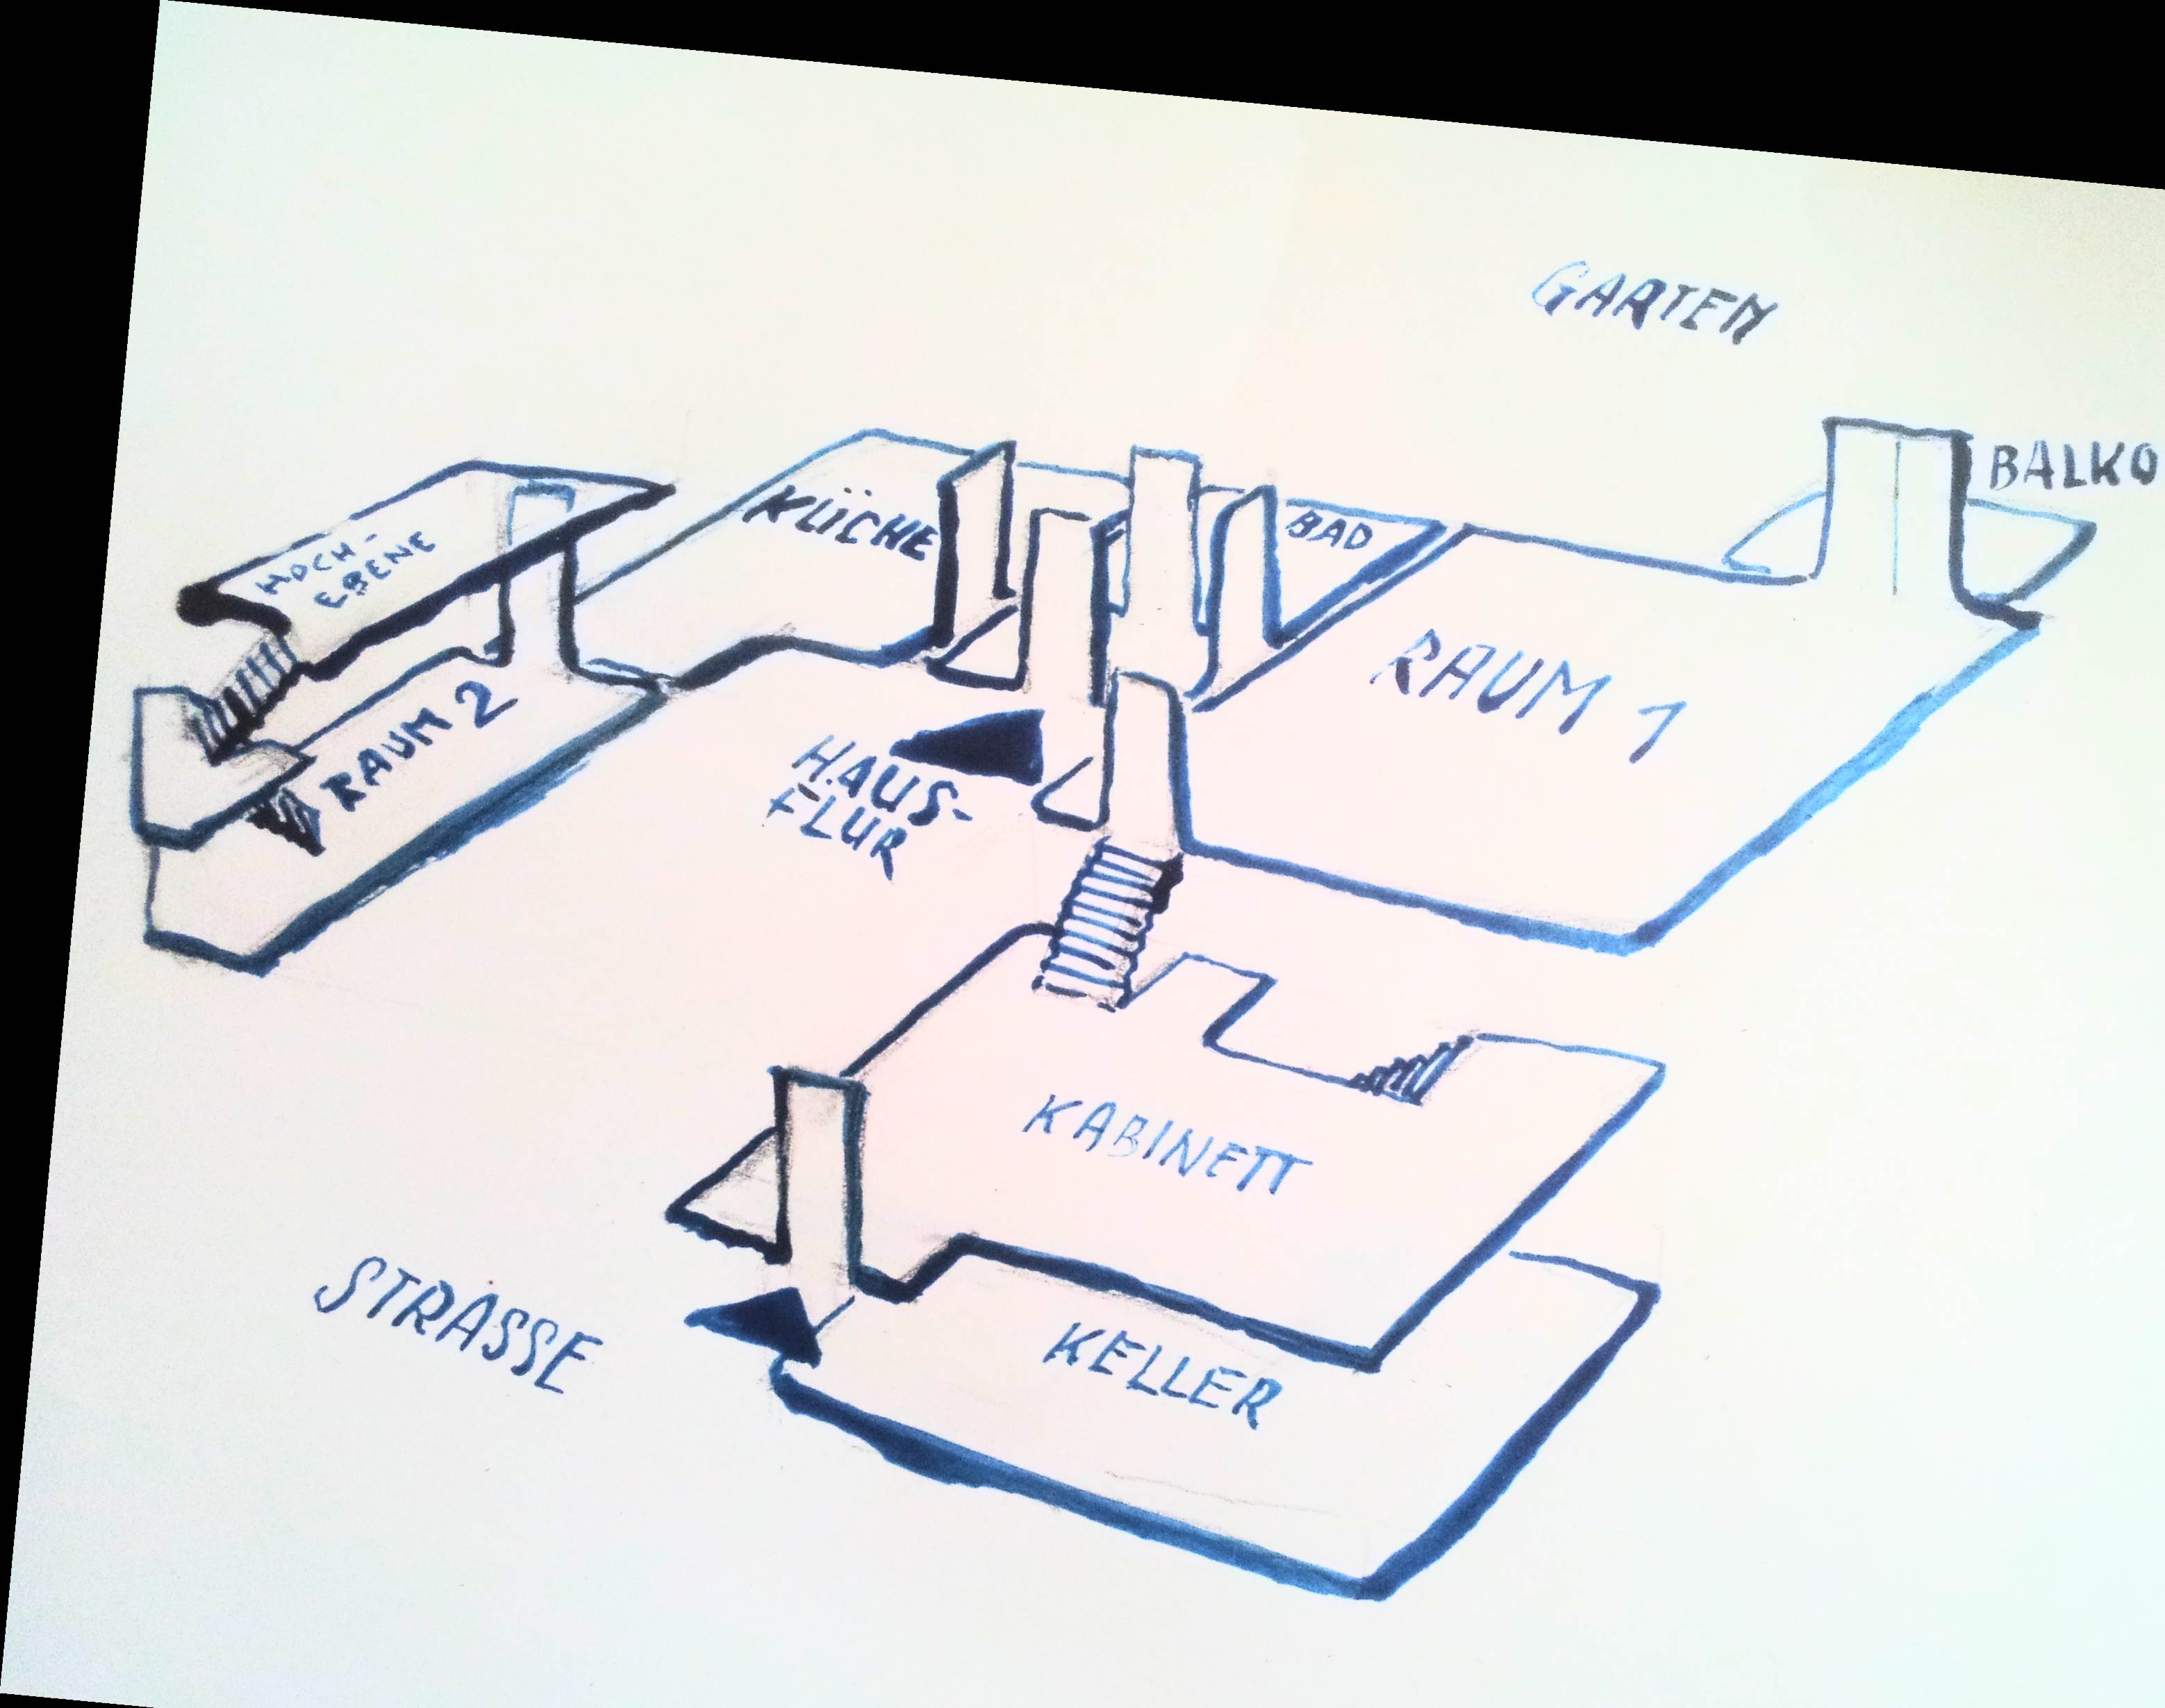 GARTEN
BALKO
KÜCHE
BAD
HOCH-
EBENE
RAUM 1
RAUM 2
HAUS-
FLUR
KABINETT
STRASSE
KELLER